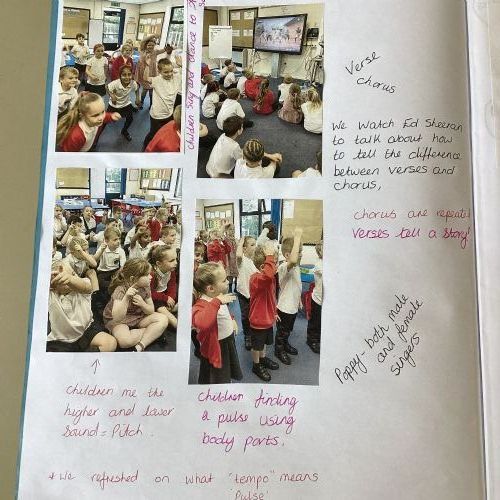 children sing and dance to
Verse
chorus
We Watch Ed Sheeran
to talk about how
to tell the difference
between verses and
chorus,
chorus are repeated
Verses tell a story!
Poppy - both male
and female
singers
Children me the
higher and lower
Sound = Pitch.
Children finding
a pulse using
body parts.
* We refreshed on what "tempo" means
'Pulse'